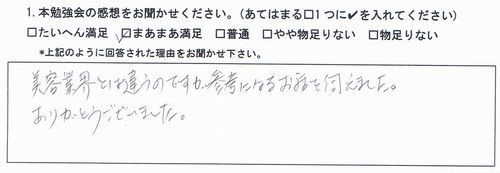 1. 本勉強会の感想をお聞かせください。（あてはまる□1つに✔を入れてください）
□たいへん満足 ☑まあまあ満足 □普通 □やや物足りない □物足りない
*上記のように回答された理由をお聞かせ下さい。
美容業界とは違うのですが参考になるお話を伺えました。
ありがとうございました。